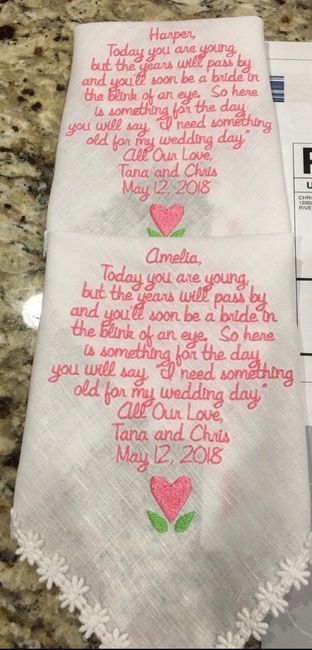 Harper,
Today you are young,
but the years will pass by
and you'll soon be a bride in
the blink of an eye. So here
is something for the day
you will say, "I need something
old for my wedding day."
All Our Love,
Tana and Chris
May 12, 2018
Amelia,
Today you are young,
but the years will pass by
and you'll soon be a bride in
the blink of an eye. So here
is something for the day
you will say, "I need something
old for my wedding day."
All Our Love,
Tana and Chris
May 12, 2018